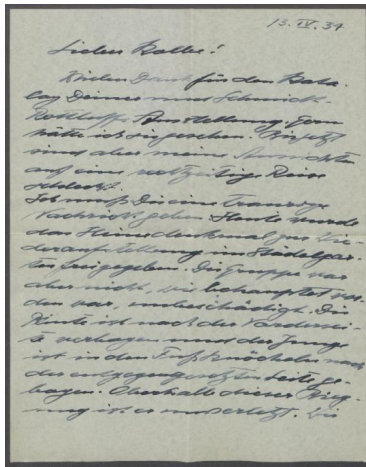 13. IV. 34
Lieber Kolbe!
Vielen Dank für den Kata-
log Deiner und Schmidt-
Rottluffs Ausstellung. Gern
hätte ich sie gesehen. Bis jetzt
sind aber meine Aussichten
auf eine rechtzeitige Reise
schlecht.
Ich muß Dir eine traurige
Nachricht geben. Heute wurde
das Heinedenkmal zur Wie-
deraufstellung im Städelgar-
ten freigegeben. Die Gruppe war
aber nicht, wie behauptet wor-
den war, unbeschädigt. Die
ist nach der Vordersei-
te verbogen und der Junge
ist in den Fußknöcheln nach
der entgegengesetzten Seite ge-
bogen. Oberhalb dieser Bieg-
ung ist er unverletzt. Die